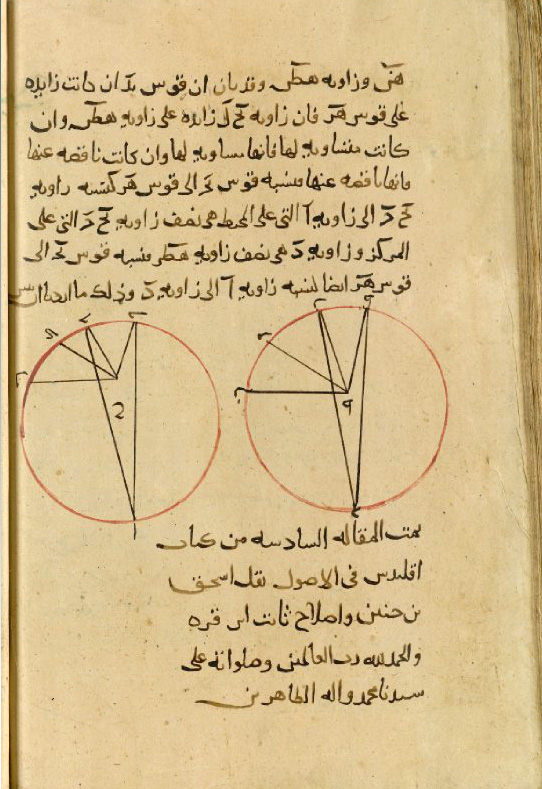 هز وزاويه هطر وقد بان ان قوس بد ان كانت زايده
على قوس هز فان زاويه كل زايده على زاويه هطر وان
كانت متساويه لها فانها مساويه لها وان كانت ناقصه عنها
فانها ناقصه عنها فنسبه قوس الى قوس هز كنسبه زاويه
الى زاويه ا التى على المحيط هى نصف زاويه التى على
المركز وزاويه هى نصف زاويه هطر فنسبه قوس الى
قوس هز ايضا كنسبه زاويه ا الى زاويه د وذلك ما اردنا ان
تمت المقاله السادسه من كتاب
اقليدس فى الاصول نقل اسحق
بن حنين واصلاح ثابت ابن قره
والحمد لله رب العالمين وصلواته على
سيدنا محمد واله الطاهرين